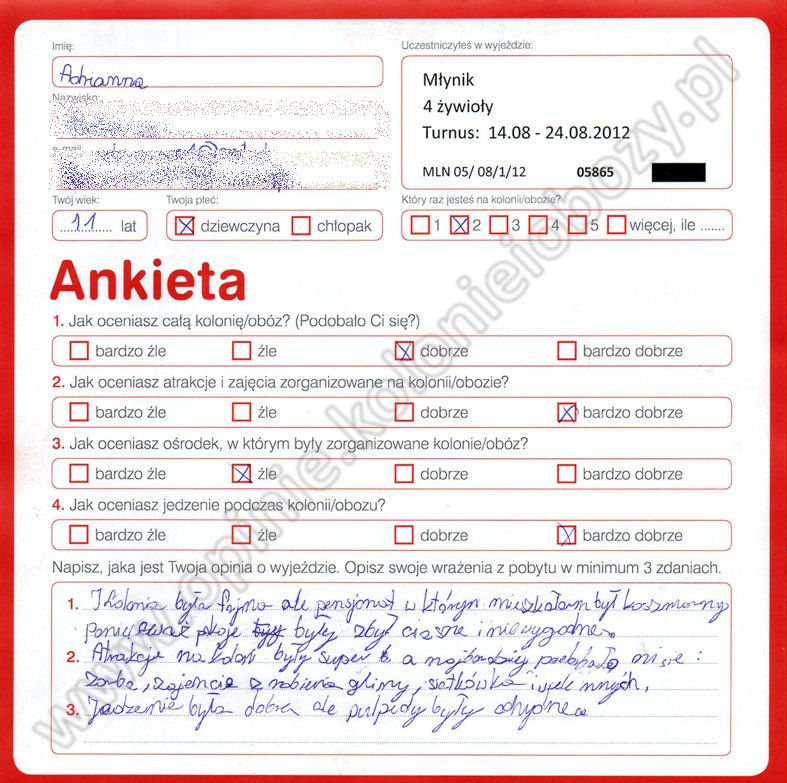 Imię:
Adrianna
Nazwisko:
e-mail:
Uczestniczyłeś w wyjeździe:
Młynik
4 żywioły
Turnus: 14.08 - 24.08.2012
MLN 05/ 08/1/12 05865
Twój wiek:
11 lat
Twoja płeć:
dziewczyna chłopak
Który raz jesteś na kolonii/obozie?
1 2 3 4 5 więcej, ile .......
Ankieta
1. Jak oceniasz całą kolonię/obóz? (Podobało Ci się?)
bardzo źle źle dobrze bardzo dobrze
2. Jak oceniasz atrakcje i zajęcia zorganizowane na kolonii/obozie?
bardzo źle źle dobrze bardzo dobrze
3. Jak oceniasz ośrodek, w którym były zorganizowane kolonie/obóz?
bardzo źle źle dobrze bardzo dobrze
4. Jak oceniasz jedzenie podczas kolonii/obozu?
bardzo źle źle dobrze bardzo dobrze
Napisz, jaka jest Twoja opinia o wyjeździe. Opisz swoje wrażenia z pobytu w minimum 3 zdaniach.
1. Kolonia była fajna ale pensjonat w którym mieszkałam był koszmarny
były zbyt ciasne i niewygodne.
2. Atrakcje na były super a najbardziej podobało mi sie:
, zajencia z robienia gliny, siatkówka i wiele innych.
3. Jedzenie było dobre ale pulpedy były ochydne
www.opinie.kolonieiobozy.pl